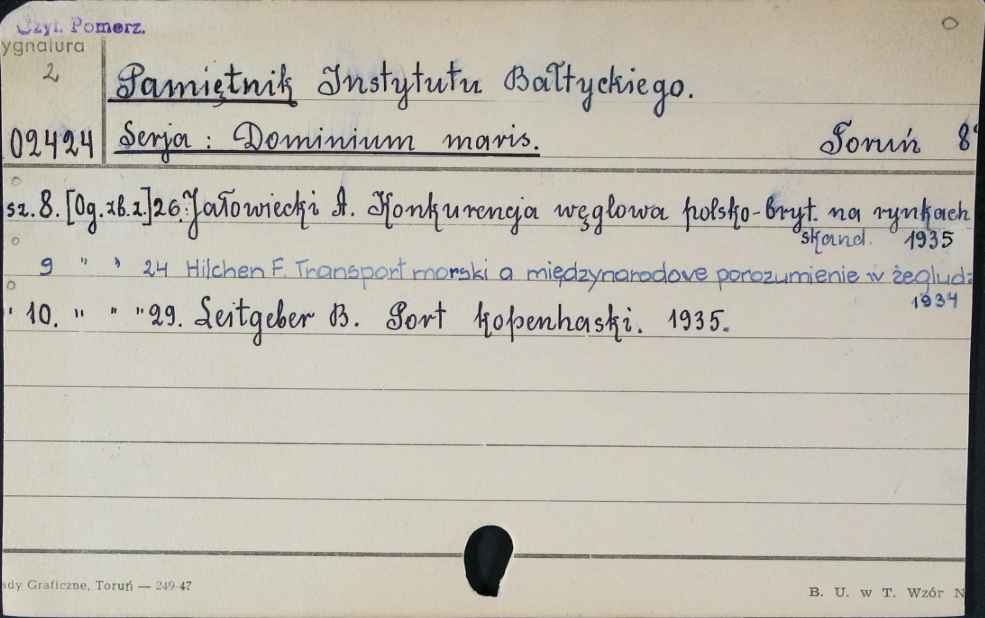 Czyt. Pomorz.
ygnatura
2
Pamiętnik Instytutu Bałtyckiego.
02424
Serja: Dominium maris. Toruń 8°
sz. 8. [Og. zb. z.] 26. Jałowiecki A. Konkurencja węglowa polsko-bryt. na rynkach
skand. 1935
9 " " 24 Hilchen F. Transport morski a międzynarodowe porozumienie w żegludz
1934
" 10. " " " 29. Leitgeber B. Port kopenhaski. 1935.
ady Graficzne, Toruń — 249-47
B. U. w T. Wzór N